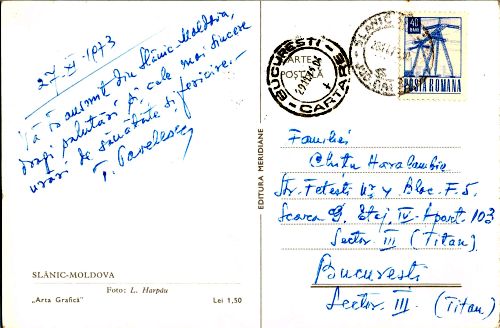 27.XI.1973
Vă transmit din Slănic-Moldova,
dragi salutări și cele mai sincere
urări de sănătate și fericire.-
T. Pavelescu
SLĂNIC-MOLDOVA
Foto: L. Harpău
„Arta Grafică”
Lei 1,50
EDITURA MERIDIANE
CARTE
POȘTALĂ
BUCUREȘTI
CARTARE
SLANIC
40
BANI
POSTA ROMANA
Familiei
Chițu Haralambie
Str. Fetești Nr. 4 Bloc. F.5.
Scara G. Etaj. IV. Apart. 103
Sector. III (Titan)
București
Sector. III (Titan)